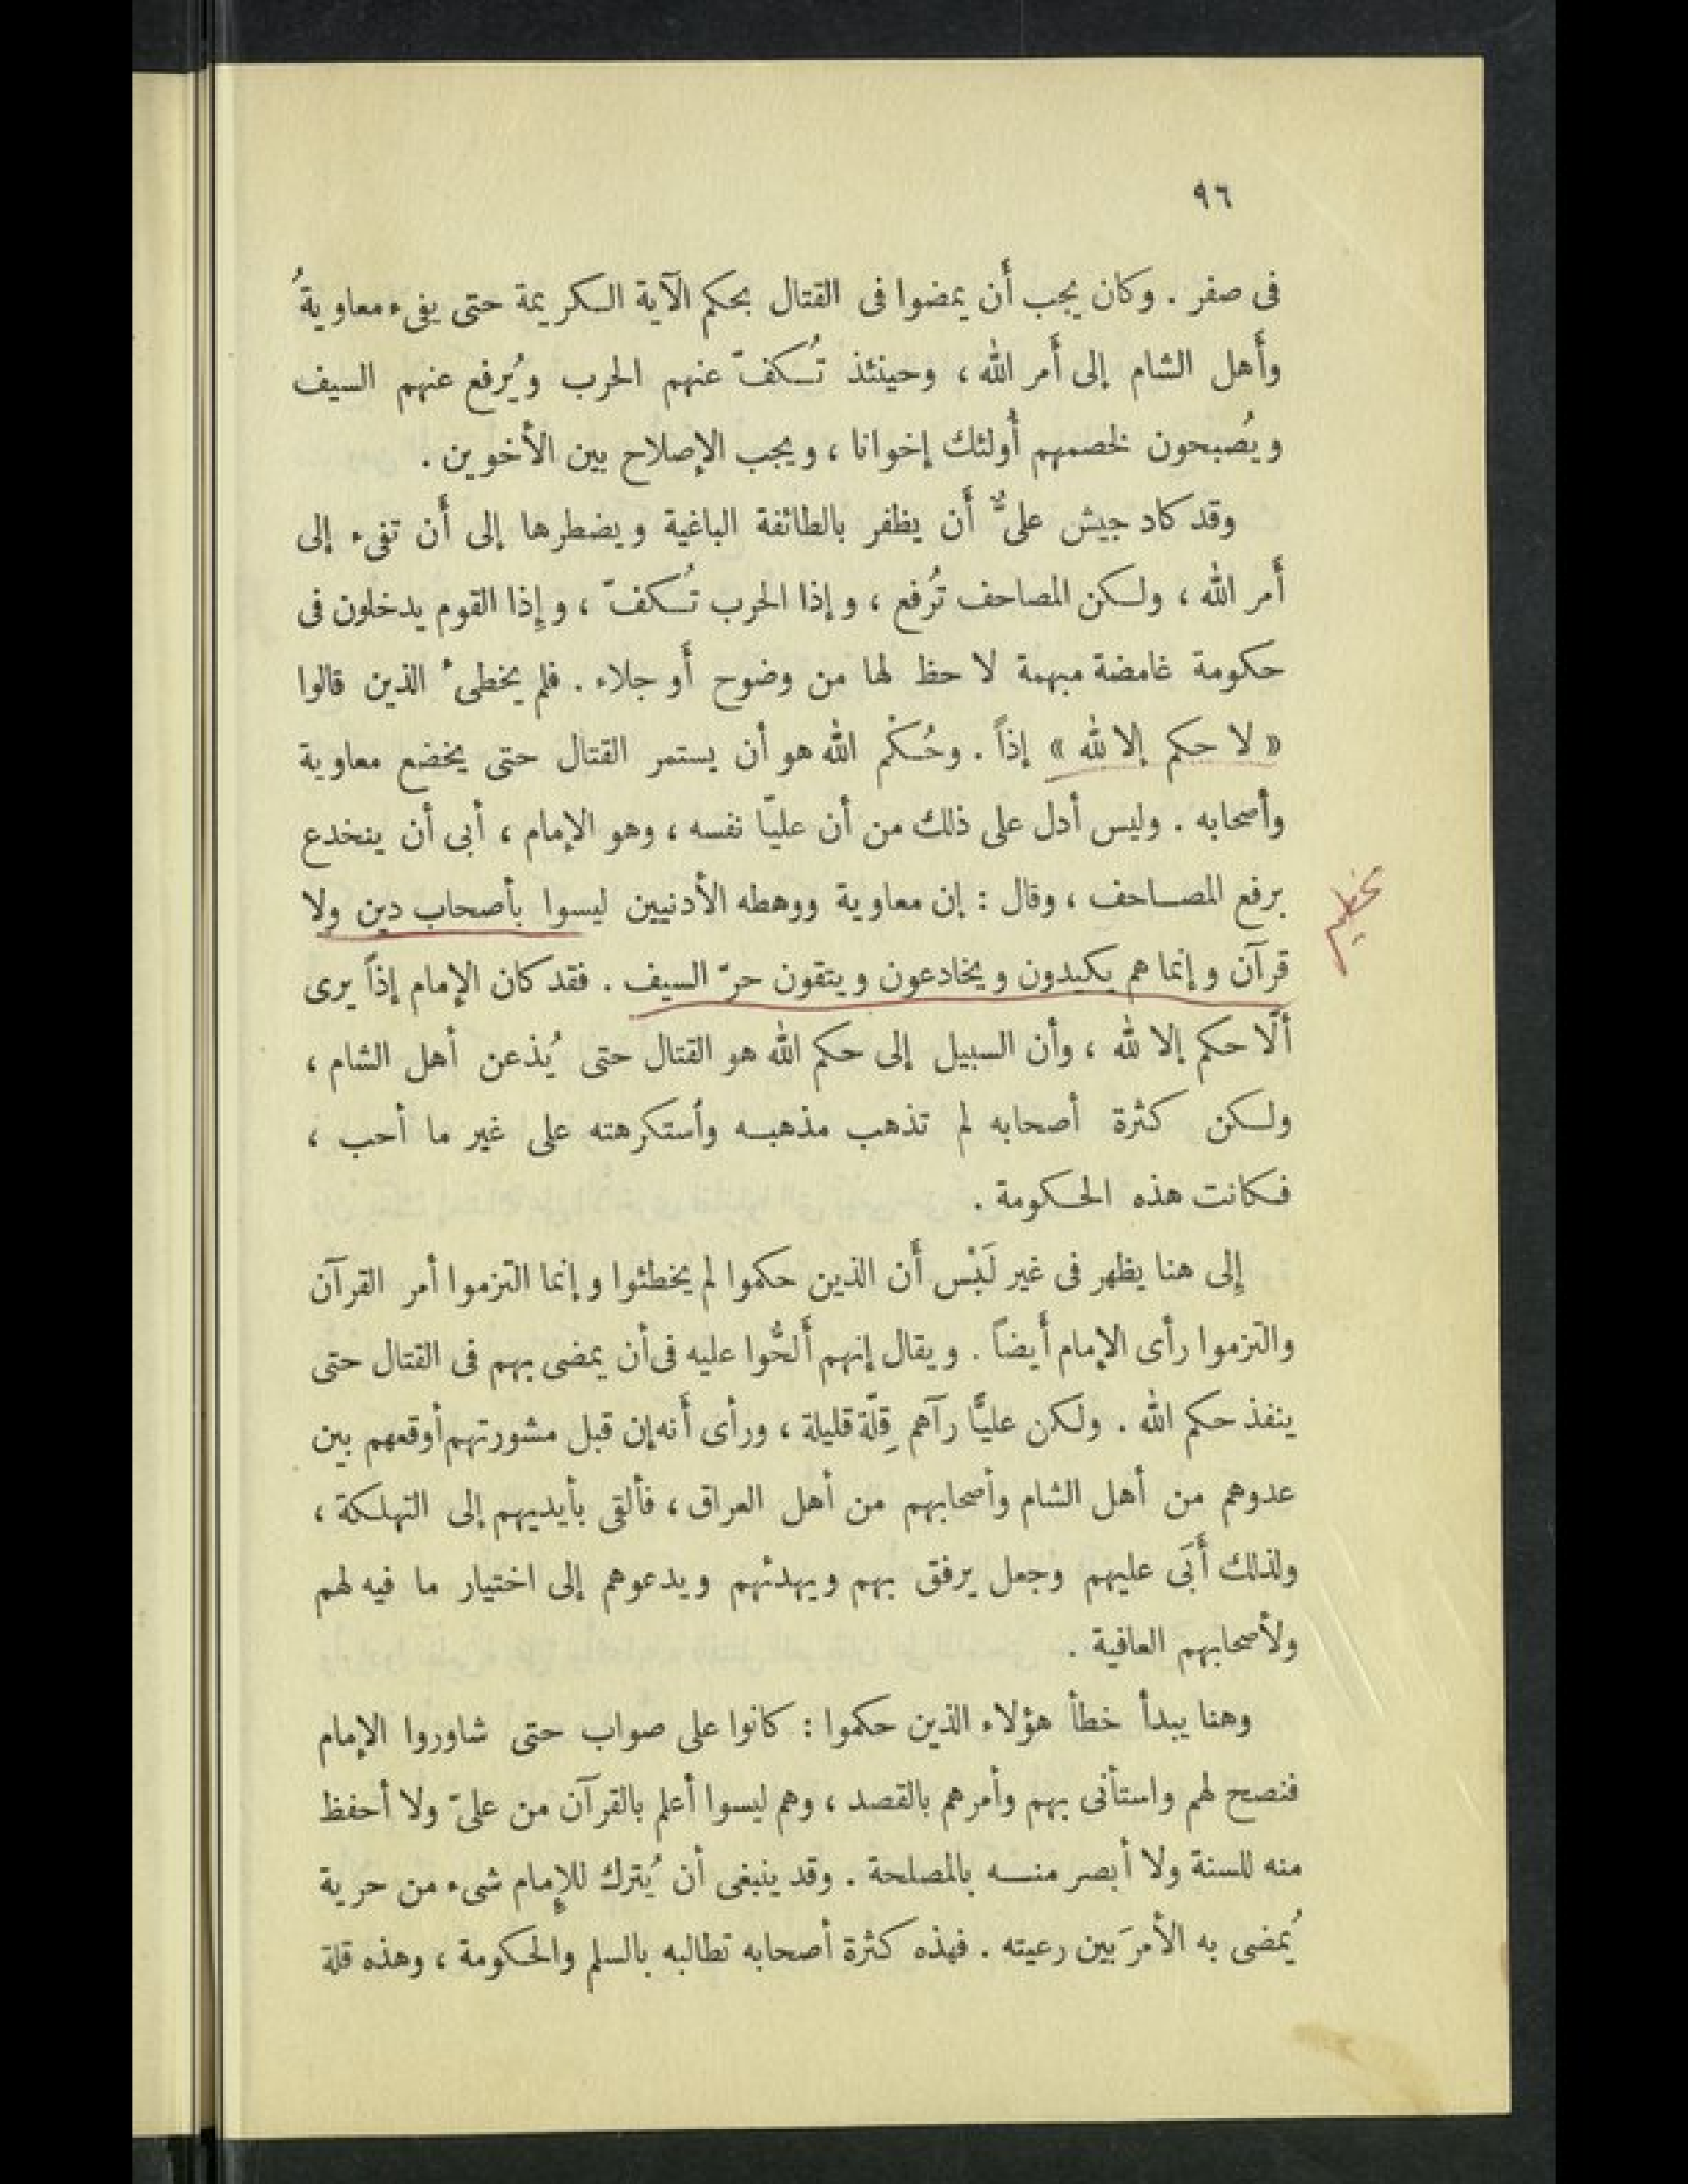 ٩٦
فى صفر . وكان يجب أن يمضوا فى القتال بحكم الآية الكريمة حتى يفىء معاويةُ
وأهل الشام إلى أمر الله ، وحينئذ تُكفّ عنهم الحرب ويُرفع عنهم السيف
ويُصبحون لخصمهم أُولئك إخوانا ، ويجب الإصلاح بين الأخوين .
وقد كاد جيش علىٌّ أن يظفر بالطائفة الباغية ويضطرها إلى أن تفىء إلى
أمر الله ، ولكن المصاحف تُرفع ، وإذا الحرب تُكفّ ، وإذا القوم يدخلون فى
حكومة غامضة مبهمة لا حظ لها من وضوح أو جلاء . فلم يخطىء الذين قالوا
« لا حكم إلا لله » إذاً . وحُكْم الله هو أن يستمر القتال حتى يخضع معاوية
وأصحابه . وليس أدل على ذلك من أن عليّا نفسه ، وهو الإمام ، أبى أن ينخدع
برفع المصاحف ، وقال : إن معاوية ووهطه الأدنيين ليسوا بأصحاب دين ولا
قرآن وإنما هم يكيدون ويخادعون ويتقون حرّ السيف . فقد كان الإمام إذاً يرى
ألّا حكم إلا لله ، وأن السبيل إلى حكم الله هو القتال حتى يُذعن أهل الشام ،
ولكن كثرة أصحابه لم تذهب مذهبه وأستكرهته على غير ما أحب ،
فكانت هذه الحكومة .
إلى هنا يظهر فى غير لَبْس أن الذين حكموا لم يخطئوا وإنما التزموا أمر القرآن
والتزموا رأى الإمام أيضاً . ويقال إنهم ألحُّوا عليه فى أن يمضى بهم فى القتال حتى
ينفذ حكم الله . ولكن عليًّا رآهم قِلّة قليلة ، ورأى أنه إن قبل مشورتهم أوقعهم بين
عدوهم من أهل الشام وأصحابهم من أهل العراق ، فألقى بأيديهم إلى التهلكة ،
ولذلك أَبَى عليهم وجعل يرفق بهم ويهدئهم ويدعوهم إلى اختيار ما فيه لهم
ولأصحابهم العافية .
وهنا يبدأ خطأ هؤلاء الذين حكموا : كانوا على صواب حتى شاوروا الإمام
فنصح لهم واستأنى بهم وأمرهم بالقصد ، وهم ليسوا أعلم بالقرآن من علىّ ولا أحفظ
منه للسنة ولا أبصر منه بالمصلحة . وقد ينبغى أن يُترك للإمام شىء من حرية
يُمضى به الأمرَ بين رعيته . فهذه كثرة أصحابه تطالبه بالسلم والحكومة ، وهذه قلة